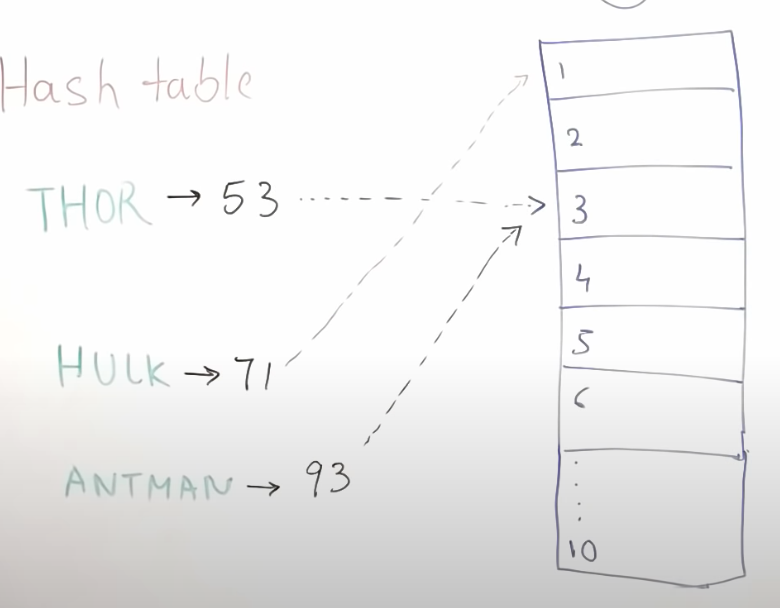 Hash table
THOR → 53
HULK → 71
ANTMAN → 93
1
2
3
4
5
6
10